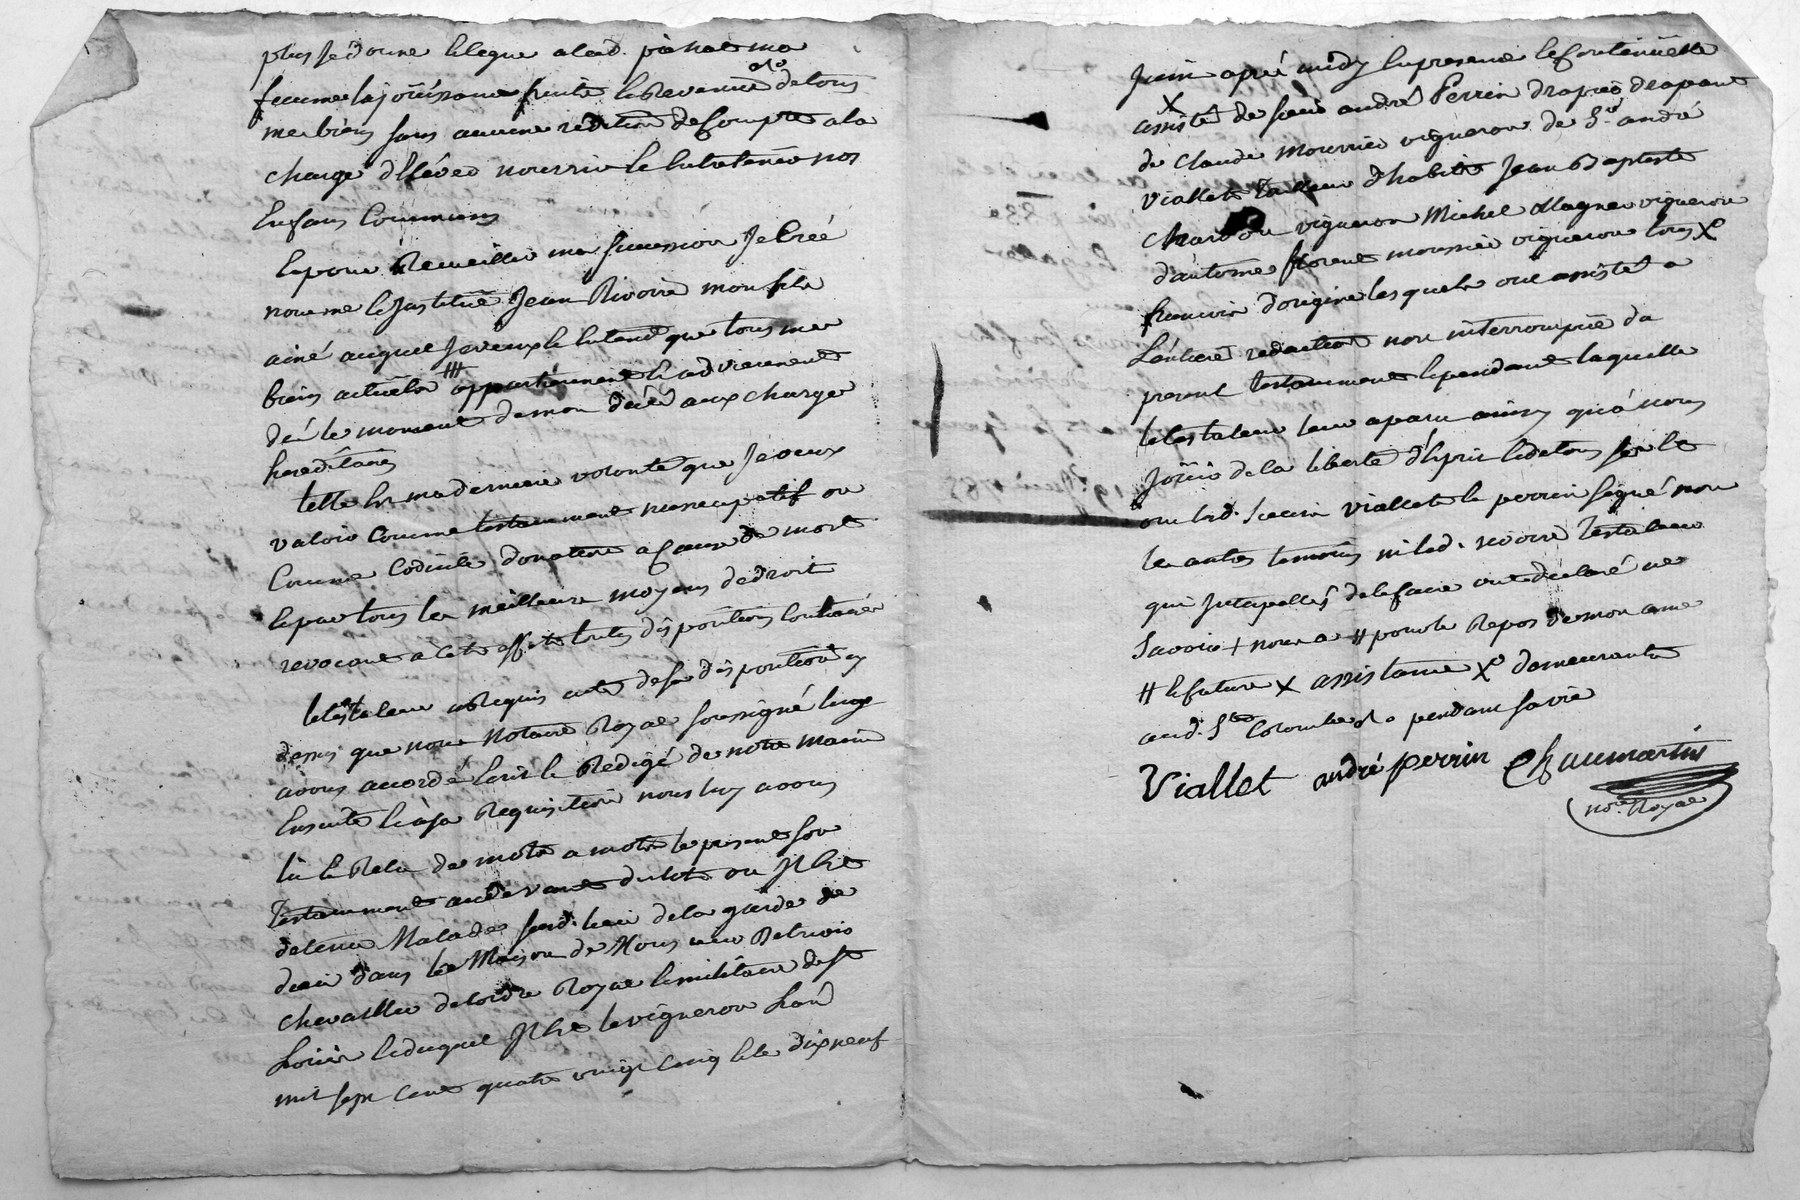 plus je donne et legue a lad. pianat ma
femme la joüissance fruits et Revenus ⁰/⁰ de tous
mes biens sans aucune reddition de Compte a la
charge d'Elever nourrir et Entretenir nos
Enfans Communs
Et pour Recueillir ma succession Je Créé
nomme et Institue Jean Rivoire mon fils
ainé auquel Je veux et Entend que tous mes
biens actuels # appartiennent et adviennent
dés le moment de mon décéd aux charges
hereditaires
telle Est ma derniere volonté que Je veux
valoir Comme testamment nuncupatif ou
Comme Codicile donation a Cause de mort
Et par tous les meilleurs moyens de droit
revocant a cet effet toutes dispositions contraires
le testateur a Requis acte de sa disposition cy
dessus que nous Notaire Royal soussigné luy
avons accordé Ecrit et Redigé de notre main
Ensuite Et a sa Requisition nous luy avons
lû et Relu de mots a mots le present son
Testamment au devant du lit ou Il Est
detenu Malade aud. lieu de la garde de
dieu dans la Maison de Mons.
chevallier de lordre Royal et militaire de St
Loüis Et duquel Il Est le vigneron L'an
mil sept cent quatre vingt Cinq et le dix neuf
Juin après midy En presence et continuelle
X
assisté de sieur andré Perrin drapier drapant
de Claude mourrier vigneron de Sr. andré
Viallet tailleur d'habits Jean Baptiste
Chardon vigneron Michel Magner vigneron
d'antoine florent moussier vigneron tous X⁰
francois d'origine lesquels ont assisté a
L'entiere redaction non interrompüe du
present testamment et pendant laquelle
le testateur leur a paru ainsy qu'a nous
Joüir de la liberté d'Esprit et de tous sens Et
ont led. sieurs viallet et perrin signé non
les autres temoins ni led. rivoire Testateur
qui Interpellés de le faire ont declaré ne
Savoir + nous a # pour le Repos de mon ame
# et future X assistance X⁰ demeurants
aud. Ste Colombe ⁰/⁰ pendant sa vie
Viallet andré perrin Chaumartin
nore. Royal